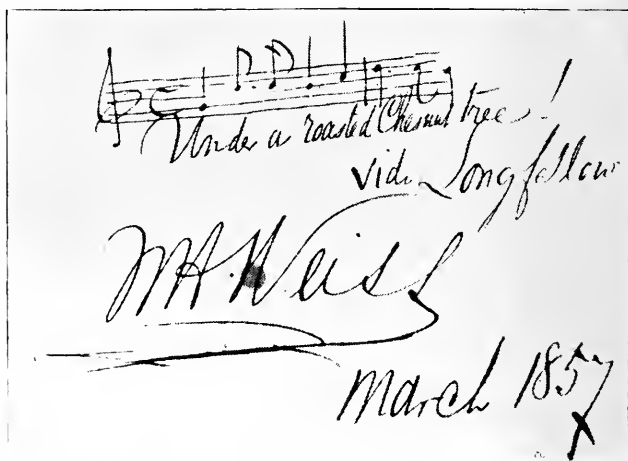 Under a roasted Chesnut tree!
vide Longfellow
W H Weiss
March 1857
X